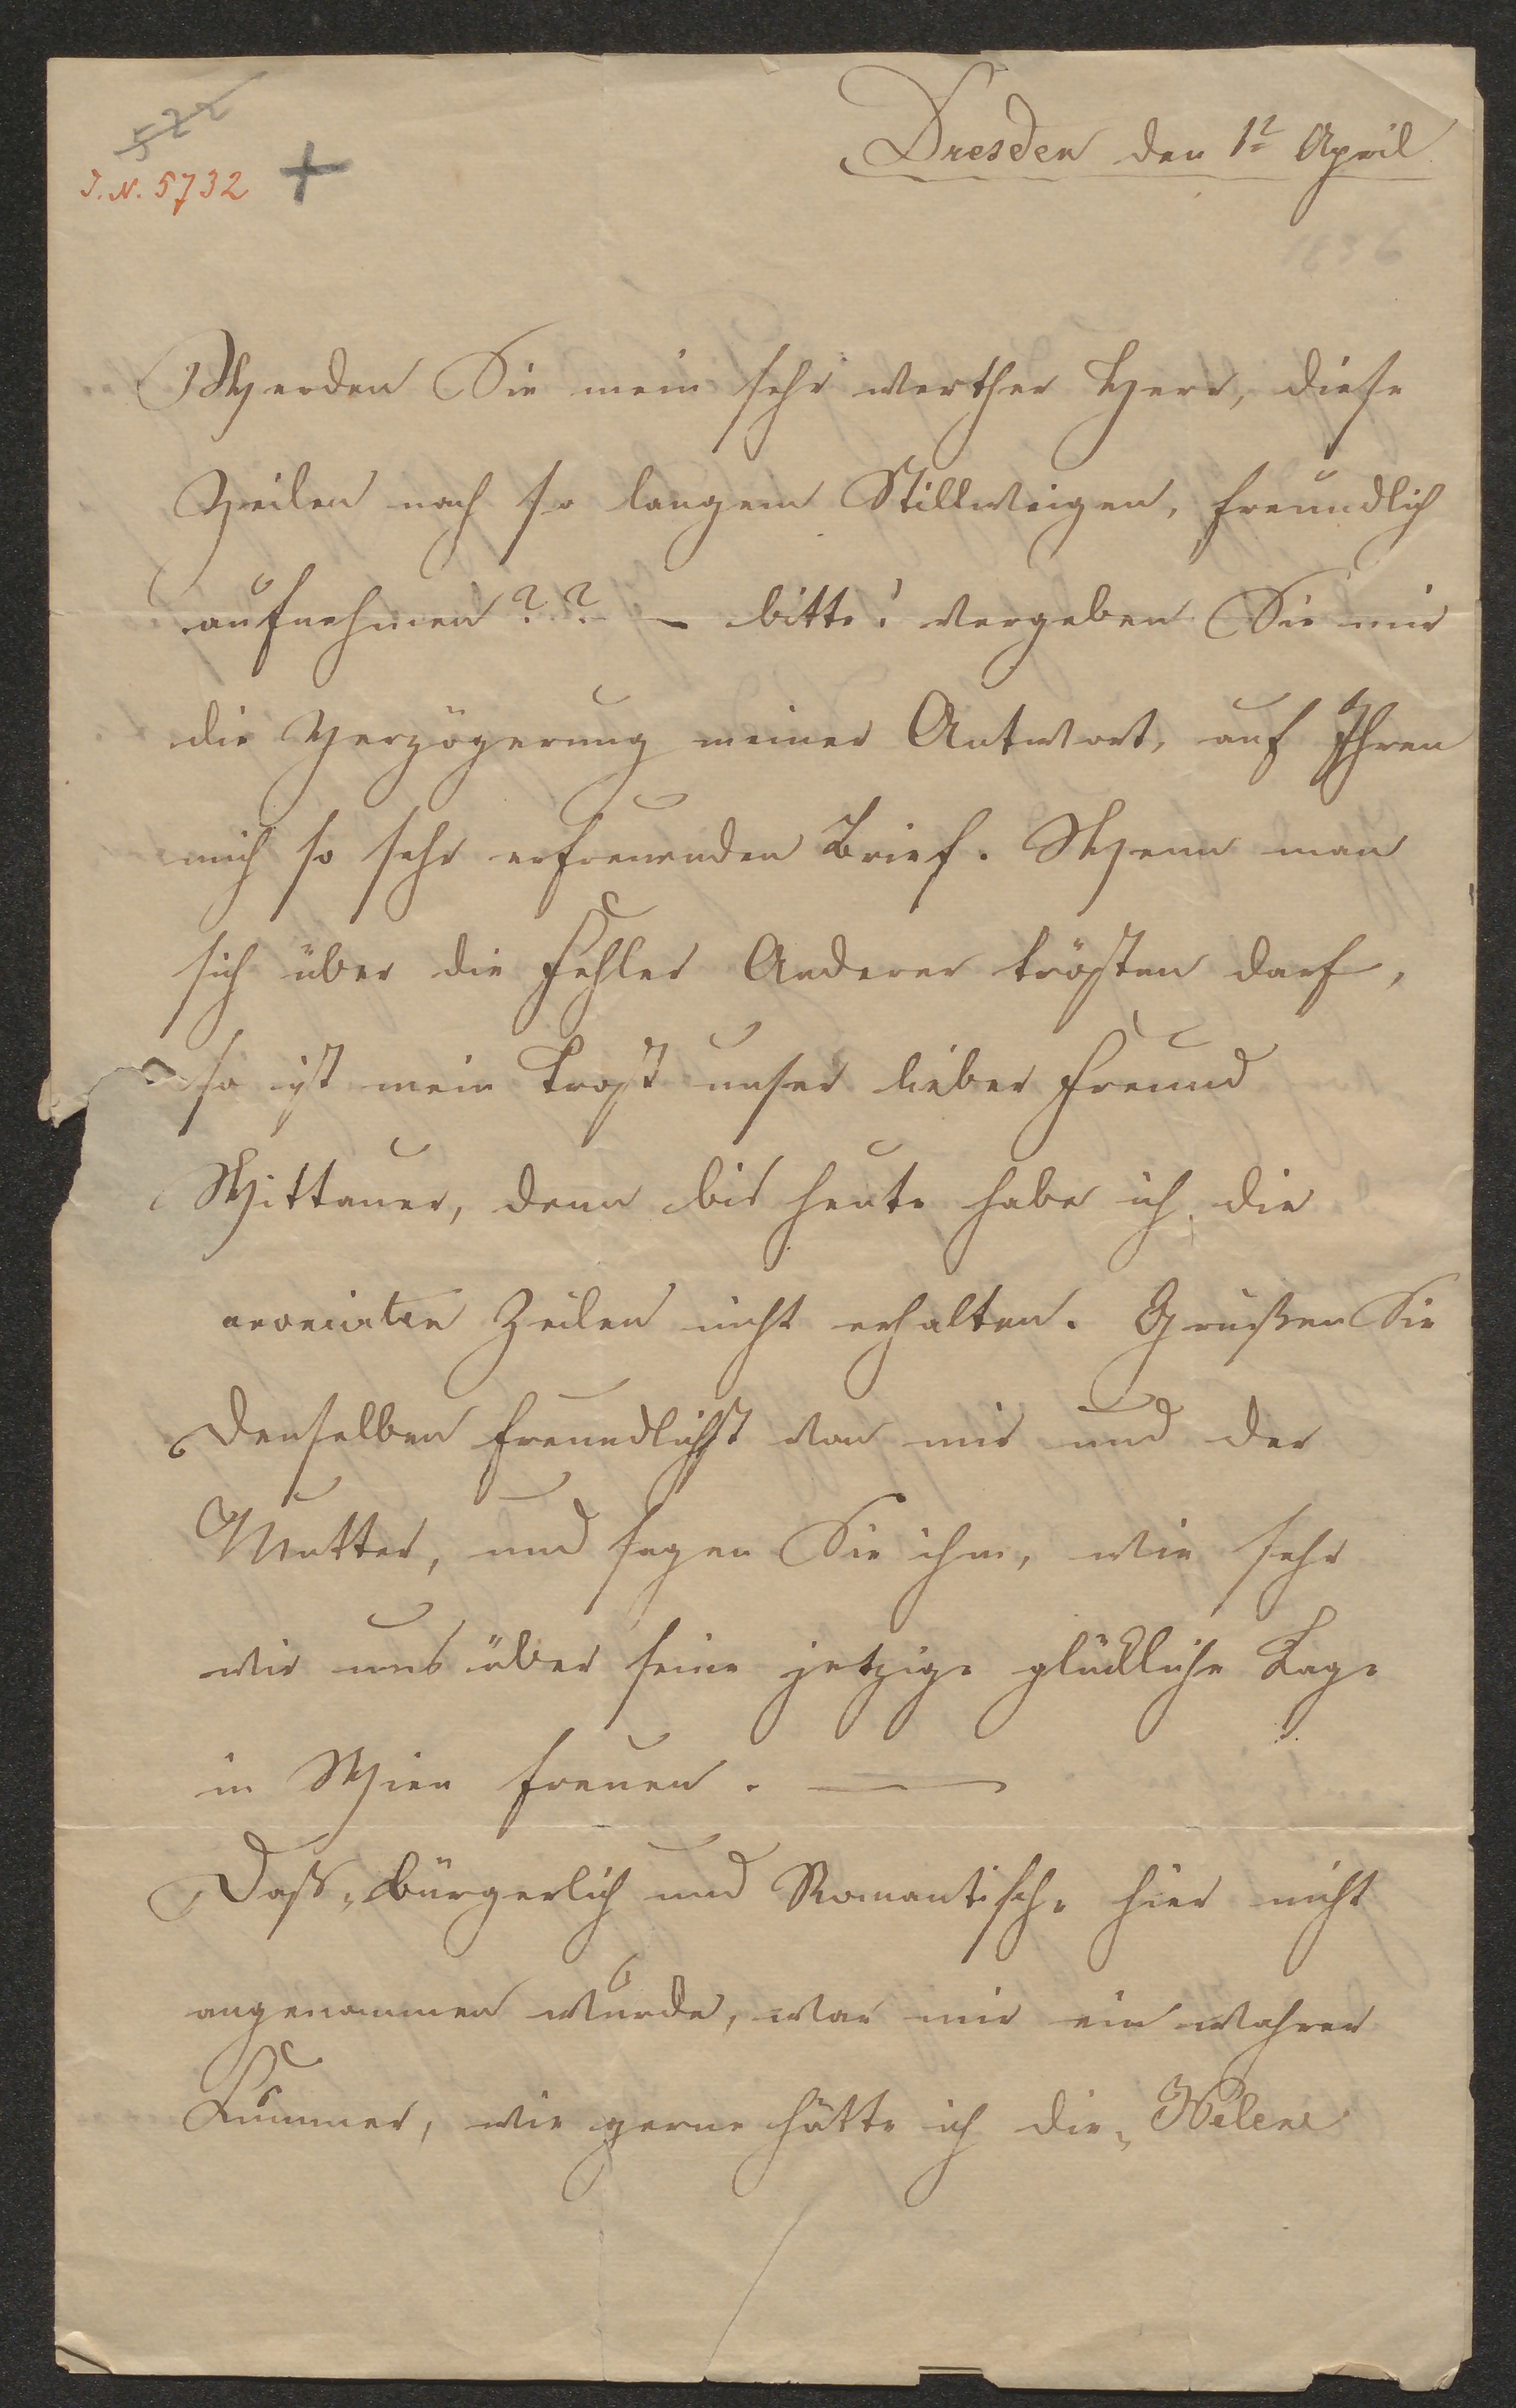 522
I. N. 5732 +
Dresden den 1t April
1836
Werden Sie mein sehr werther Herr, diese
Zeilen nach so langem Stillweigen, freundlich
aufnehmen?? – bitte! vergeben Sie mir
die Verzögerung meiner Antwort, auf Ihren
mich so sehr erfreuenden Brief. Wenn man
sich über die Fehler Anderer trösten darf,
so ist mein Trost unser lieber Freund
Wittauer, denn bis heute habe ich die
avorirten Zeilen nicht erhalten. Grüßen Sie
denselben freundlichst von mir und der
Mutter, und sagen Sie ihm, wie sehr
wir uns über seine jetzige glückliche Lage
in Wien freuen. —
Daß „Bürgerlich und Romantisch" hier nicht
angenommen wurde, war mir ein wahrer
Kummer, wie gerne hätte ich die „Helene